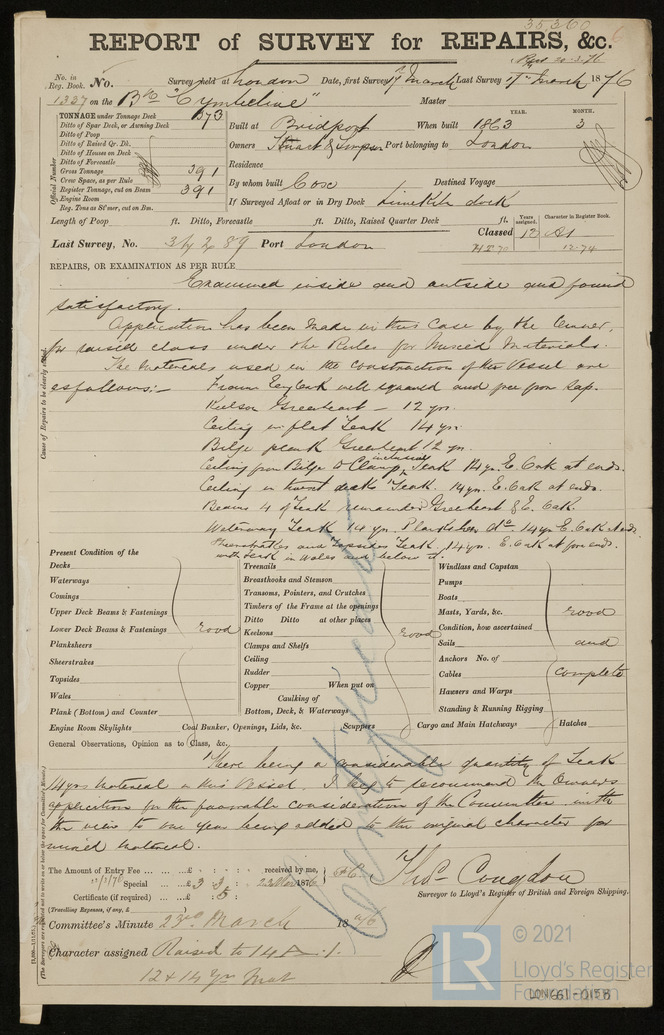 35360
REPORT of SURVEY for REPAIRS, &c.
No. in Reg. Book. No. Survey held at London Date, first Survey 17th March Last Survey 17th March 1876
1327 on the Bk "Cymbeline" Master
TONNAGE under Tonnage Deck 373
Ditto of Spar Deck, or Awning Deck
Ditto of Poop
Ditto of Raised Qr. Dk.
Ditto of Houses on Deck
Ditto of Forecastle
Gross Tonnage 391
Crew Space, as per Rule
Register Tonnage, cut on Beam 391
Engine Room
Reg. Tons as St'mer, cut on Bm.
Official Number
YEAR. MONTH.
Built at Bridport When built 1863 3
Owners Stuart & Simpson Port belonging to London
Residence
By whom built Cox Destined Voyage
If Surveyed Afloat or in Dry Dock Limekiln dock
Length of Poop ft. Ditto, Forecastle ft. Ditto, Raised Quarter Deck ft.
Years assigned. Character in Register Book.
Last Survey, No. 34289 Port London Classed 12 A1
12-74
REPAIRS, OR EXAMINATION AS PER RULE
Examined inside and outside and found
satisfactory.
Application has been made in this case by the Owner,
for raised class under the Rules for Mixed Materials.
The Materials used in the construction of the Vessel are
as follows:-
Frame Eng. Oak well squared and free from sap.
Keelson Greenheart - 12 yrs.
Ceiling in flat Teak 14 yrs.
Bilge plank Greenheart 12 yrs.
Ceiling from Bilge to Clamp inclusive Teak 14 yrs. E. Oak at ends.
Ceiling in twixt decks Teak. 14 yrs. E. Oak at ends.
Beams 4 of Teak remainder Greenheart & E. Oak.
Waterway Teak 14 yrs. Planksheer do 14 yrs E. Oak at ends.
Sheerstrakes and topsides Teak 14 yrs. E. Oak at fore ends.
with Teak in Wales and below it.
Cause of Repairs to be clearly stated.
Present Condition of the
Decks
Waterways
Comings
Upper Deck Beams & Fastenings
Lower Deck Beams & Fastenings good
Planksheers
Sheerstrakes
Topsides
Wales
Plank (Bottom) and Counter
Engine Room Skylights
Treenails
Breasthooks and Stemson
Transoms, Pointers, and Crutches
Timbers of the Frame at the openings
Ditto Ditto at other places
Keelsons good
Clamps and Shelfs
Ceiling
Rudder
Copper When put on
Caulking of
Bottom, Deck, & Waterways
Coal Bunker, Openings, Lids, &c. Scuppers
Windlass and Capstan
Pumps
Boats
Masts, Yards, &c. good
Condition, how ascertained
Sails and
Anchors No. of
Cables complete
Hawsers and Warps
Standing & Running Rigging
Cargo and Main Hatchways Hatches
General Observations, Opinion as to Class, &c.
There being a considerable quantity of Teak
14 yrs material in this Vessel. I beg to recommend the Owners
application for the favorable consideration of the Committee with
the view to one year being added to the original character for
mixed material.
The Amount of Entry Fee £ : : received by me,
Special £ 3 : 3 : 1876
Certificate (if required) £ : 5 :
(Travelling Expenses, if any, £ )
Thos. Congdon
Surveyor to Lloyd's Register of British and Foreign Shipping.
Committee's Minute 23rd March 1876
Character assigned Raised to 14 A.1.
12 + 14 Yrs Mat
© 2021
LR
Lloyd's Register
Foundation
LON661-0158